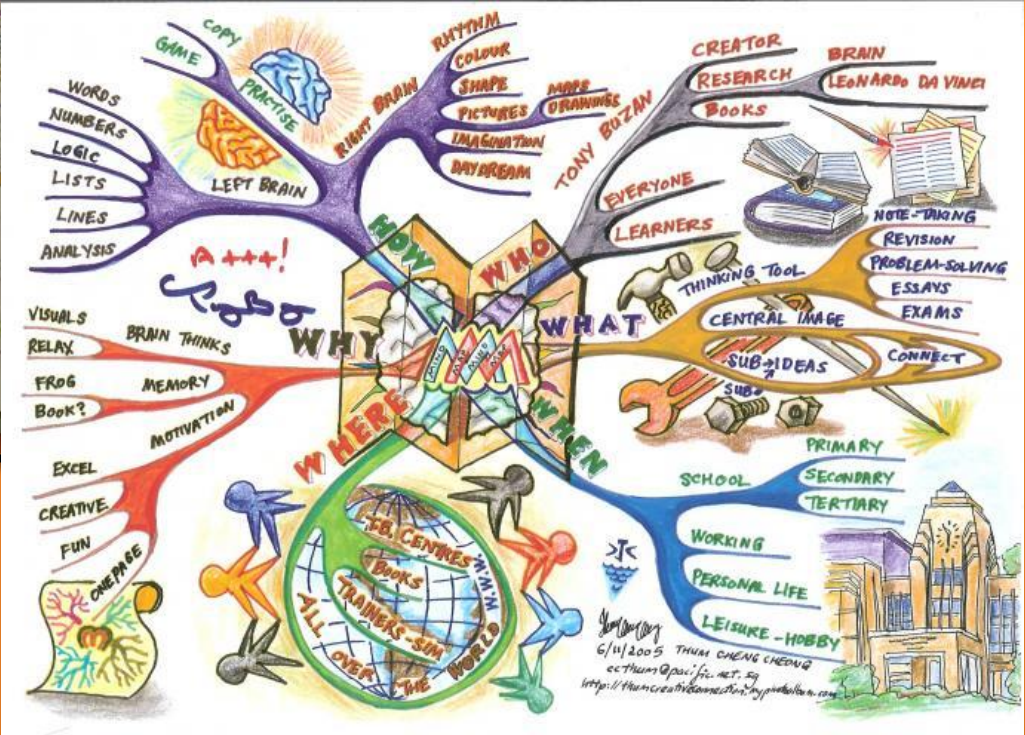 HOW
COPY
GAME
PRACTISE
LEFT BRAIN
WORDS
NUMBERS
LOGIC
LISTS
LINES
ANALYSIS
RIGHT BRAIN
RHYTHM
COLOUR
SHAPE
PICTURES
MAPS
DRAWINGS
IMAGINATION
DAYDREAM
WHO
TONY BUZAN
CREATOR
RESEARCH
BRAIN
LEONARDO DA VINCI
BOOKS
EVERYONE
LEARNERS
WHAT
THINKING TOOL
NOTE-TAKING
REVISION
PROBLEM-SOLVING
ESSAYS
EXAMS
CENTRAL IMAGE
SUB→IDEAS
SUB
CONNECT
WHEN
SCHOOL
PRIMARY
SECONDARY
TERTIARY
WORKING
PERSONAL LIFE
LEISURE-HOBBY
WHERE
I.S.B. CENTRES
BOOKS
TRAINERS-SIM
ALL OVER THE WORLD
W.W.W.
WHY
BRAIN THINKS
VISUALS
RELAX
MEMORY
FROG
BOOK?
MOTIVATION
EXCEL
CREATIVE
FUN
ONEPAGE
MIND MAP MIND MAP
A+++!
6/11/2005 THUM CHENG CHEONG
ccthum@pacific.net.sg